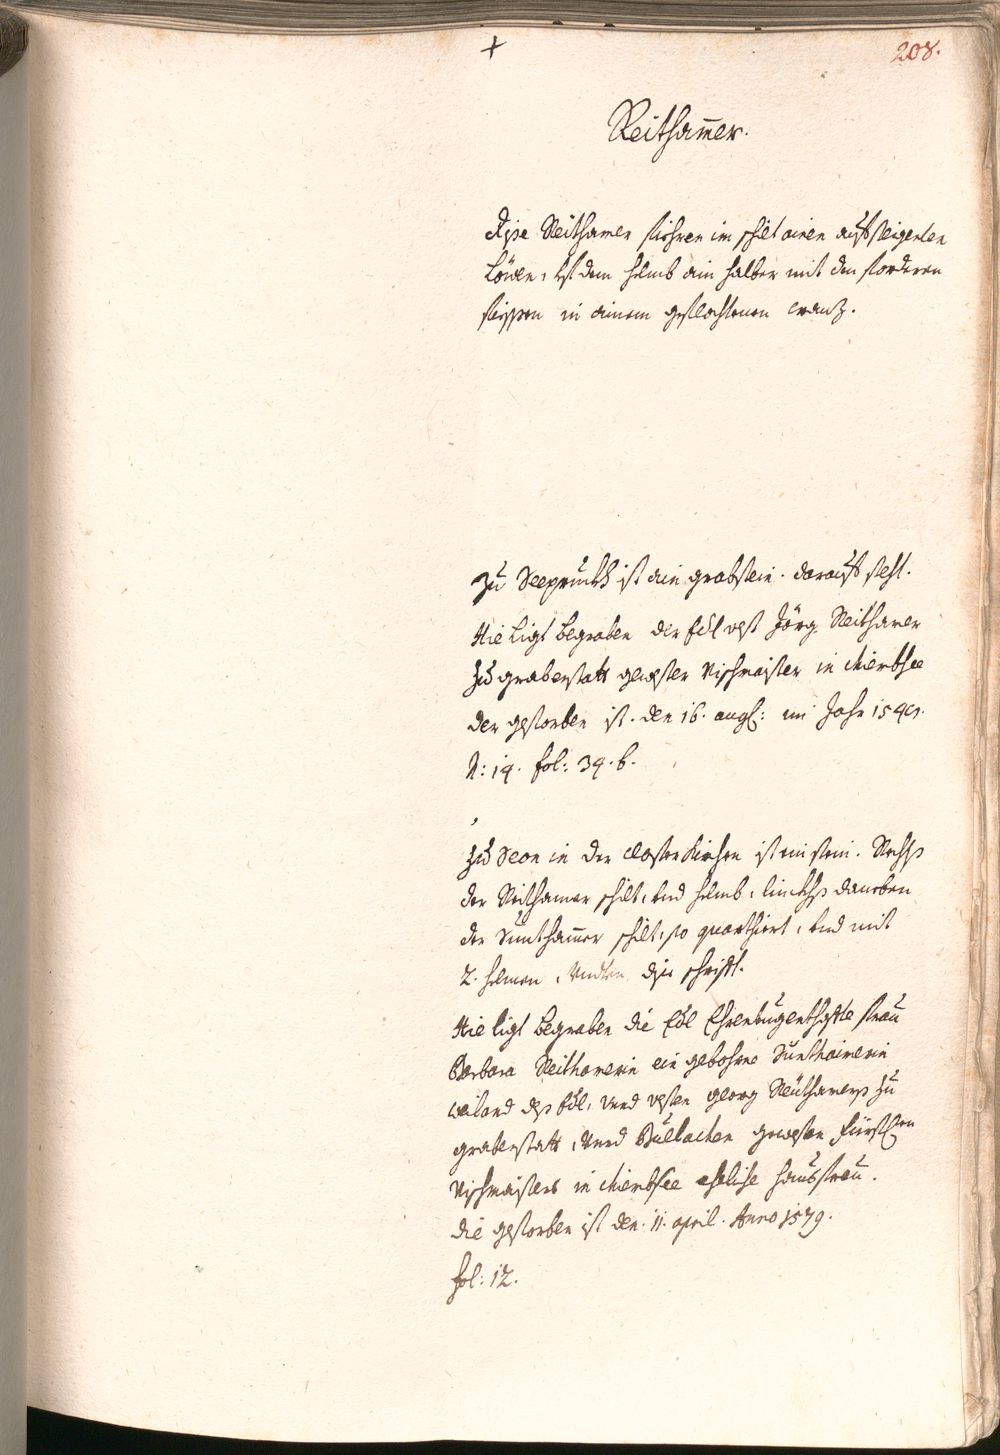 +
208.
Reitham̄er.
Dise Reithamer fiehren im schilt ainen aufsteigenten
Löwen, vf dem helmb ain halber mit den forderen
fiessen in ainem geflochtenen cranz.
Zu Seepruckh ist ain grabstein. darauf steht.
Hie Ligt begraben der Edl vest Jörg Reithamer
Zu graberstatt gewester Vischmaister in Chiembsee
der gestorben ist. den 16. aug: im Jahr
N: 14. fol: 34. b.
Zu Seon in der Closter Kirchen ist ein stein. Rechts
der Reithamer schilt, vnd helmb, linckhs daneben
der Suntham̄er schilt, so quarthiert, vnd mit
2. helmen, Vndten dise schrifft.
Hie ligt begraben die Edl Ehrentugenthaffte frau
Barbara Reithamerin ein gebohrne Sunthaimerin
weiland des Edl, vnd vesten georg Reithamers zu
graberstatt, Vnd gewesten Fürstlichen
Vischmaisters in Chiembsee eheliche hausfrau.
die gestorben ist den. 11. april. Anno 1579.
fol: 12.